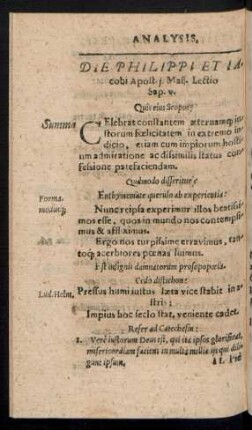 ANALYSIS.
DIE PHILIPPI ET IA-
cobi Apost. j. Maij. Lectio
Sap. v.
Quis eius Scopus?
Summa
CElebrat constantem æternamq; iu-
storum fœlicitatem in extremo iu-
dicio, etiam cum impiorum
um admiratione ac dissimilis status con-
fessione patefaciendam.
Quomodo disseritur?
Enthymemate querulo ab experientia:
Forma
Nunc reipsa experimur illos beatissi-
mos esse, quos in mundo nos contempsi-
mus & afflixmus.
Ergo nos turpissime erravimus,
acerbiores pœnas luimus.
Est insignis damnatorum prosopopœia.
Cedo distichon:
Lud. Helm.
Pressus humi iustus læta vice stabit in a-
stris:
Impius hoc seclo stat, veniente cadet.
Refer ad Catechesin:
1. Verè iustorum Deus est, qui ita ipsos glorificat,
misericordiam faciens in multa millia
gunt ipsum,